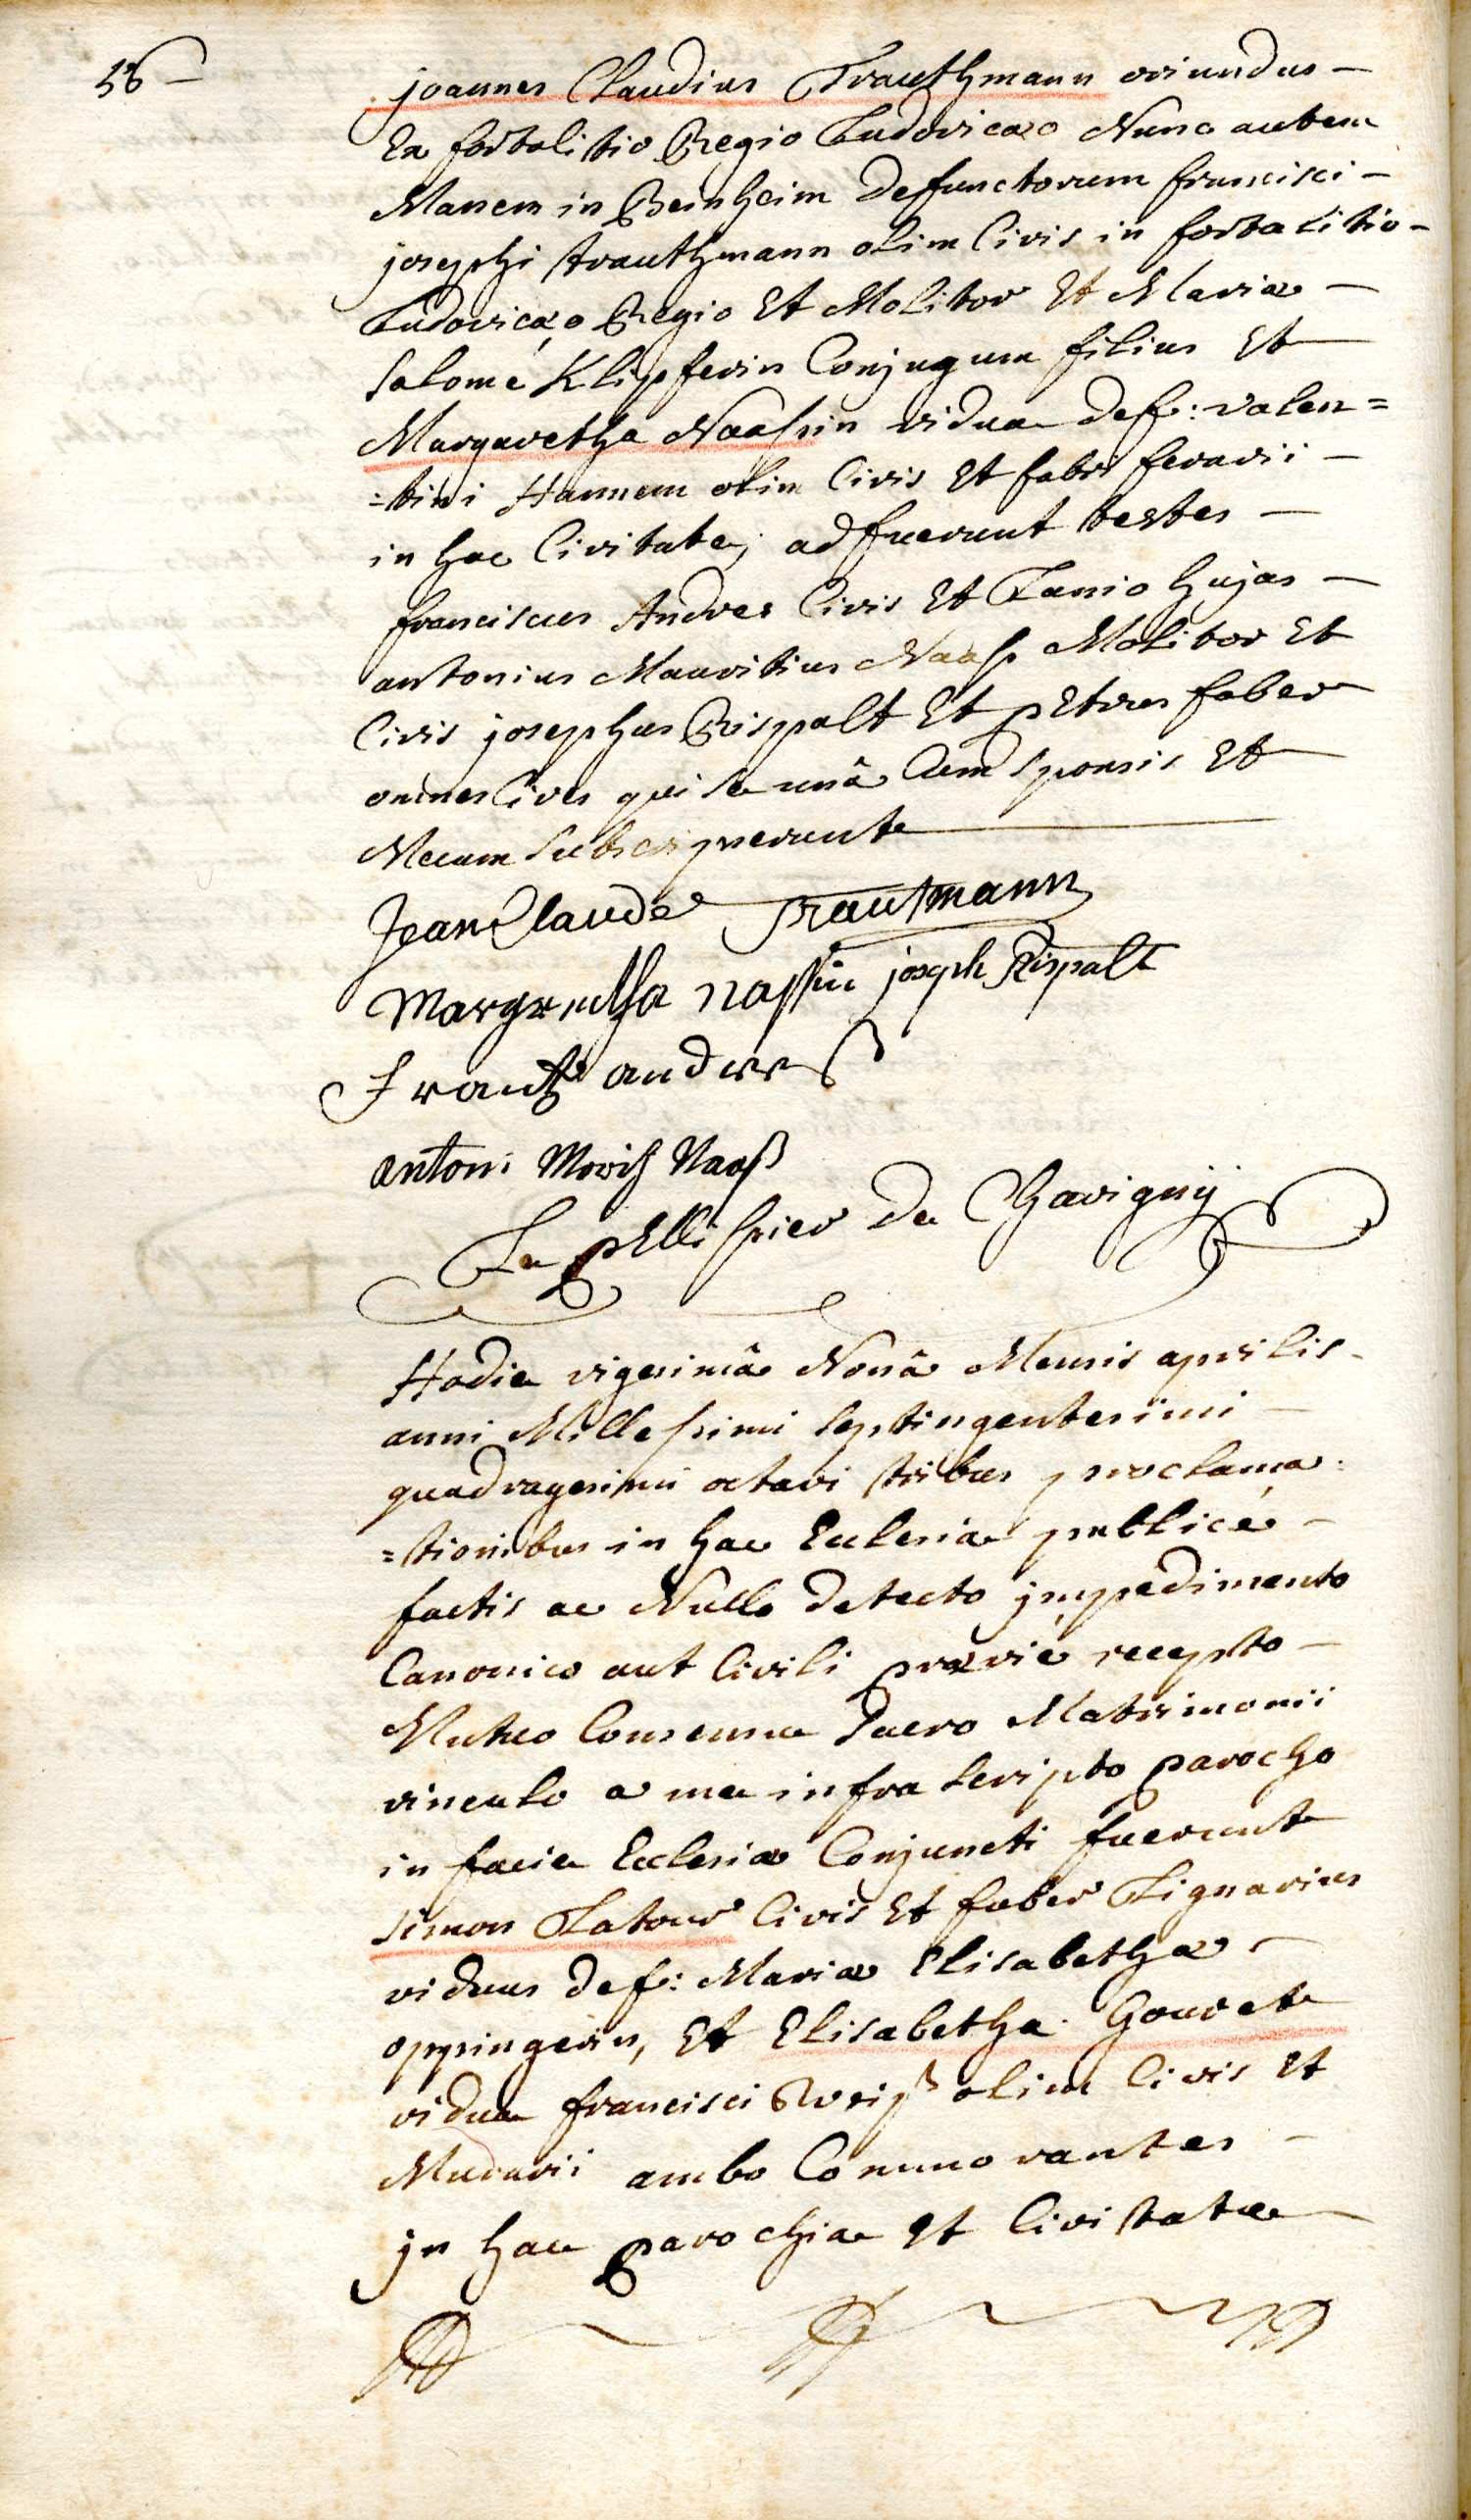 56
joannes Claudius Trauthmann oriundus –
Ex fortalitio Regio Ludovicæo Nunc autem
Manens in Beinheim defunctorum francisci –
josephi trauthmann olim Civis in fortalitio –
Ludovicæo Regio Et Molitor Et Mariæ –
salomé Klipferin Conjugum filius Et
Margaretha Naassin vidua def: valen=
=tini Hannem olim Civis Et fabri ferarii –
in hac Civitate; adfuerunt testes –
franciscus Andres Civis Et Lanio hujas –
antonius Mauritius Naass Molitor Et
Civis josephus Rispalt Et pEtrus faber
omnes Cives qui se unâ Cum sponsis Et
Mecum subscripserunt
Jean Claude Trautmann
Margretha nassin joseph Rispalt
Frantz andres
antoni Moritz Naaß
Le pElissier de Chavigny
Hodie vigesimâ Nonâ Mensis aprilis –
anni Millessimi septingentesimi –
quadragesimi octavi tribus proclama=
=tionibus in hac Ecclesia publicé –
factis ac Nullo detecto jmpedimento
Canonico aut Civili prævié recepto –
Mutuo Consensu sacro Matrimonii
vinculo a me infra scripto parocho
in facie Ecclesiæ Conjuncti fuerunt
simon Latour Civis Et faber Lignarius
viduus def: Mariæ Elisabethæ –
oppingerin, Et Elisabetha Gouret
vidua francisci Weiß olim Civis Et
Murarii ambo Commorantes –
jn hac parochia Et Civitate